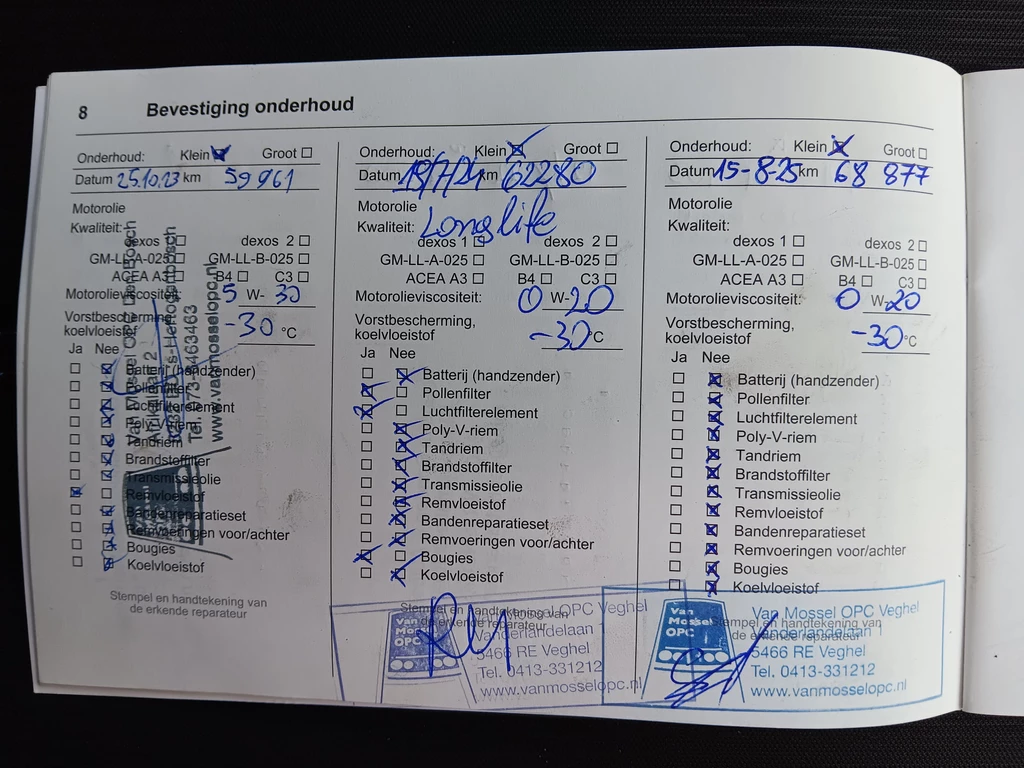 8 Bevestiging onderhoud
Onderhoud: Klein Groot
Datum 25.10.23 km 59 961
Motorolie
Kwaliteit:
dexos 1 dexos 2
GM-LL-A-025 GM-LL-B-025
ACEA A3 B4 C3
Motorolieviscositeit: 5 W- 30
Vorstbescherming,
koelvloeistof -30 °C
Ja Nee
Batterij (handzender)
Pollenfilter
Luchtfilterelement
Poly-V-riem
Tandriem
Brandstoffilter
Transmissieolie
Remvloeistof
Bandenreparatieset
Remvoeringen voor/achter
Bougies
Koelvloeistof
Stempel en handtekening van
de erkende reparateur
Van Mossel OPC Den Bosch
's-Hertogenbosch
www.vanmosselopc.nl
Onderhoud: Klein Groot
Datum 18/7/24 km 62280
Motorolie
Kwaliteit: Longlife
dexos 1 dexos 2
GM-LL-A-025 GM-LL-B-025
ACEA A3 B4 C3
Motorolieviscositeit: 0 W-20
Vorstbescherming,
koelvloeistof -30°C
Ja Nee
Batterij (handzender)
Pollenfilter
Luchtfilterelement
Poly-V-riem
Tandriem
Brandstoffilter
Transmissieolie
Remvloeistof
Bandenreparatieset
Remvoeringen voor/achter
Bougies
Koelvloeistof
Stempel en handtekening van
de erkende reparateur
Van Mossel OPC
Van Mossel OPC Veghel
Vanderlandelaan 1
5466 RE Veghel
Tel. 0413-331212
www.vanmosselopc.nl
Onderhoud: Klein Groot
Datum 15-8-25 km 68 877
Motorolie
Kwaliteit:
dexos 1 dexos 2
GM-LL-A-025 GM-LL-B-025
ACEA A3 B4 C3
Motorolieviscositeit: 0 W-20
Vorstbescherming,
koelvloeistof -30°C
Ja Nee
Batterij (handzender)
Pollenfilter
Luchtfilterelement
Poly-V-riem
Tandriem
Brandstoffilter
Transmissieolie
Remvloeistof
Bandenreparatieset
Remvoeringen voor/achter
Bougies
Koelvloeistof
Stempel en handtekening van
de erkende reparateur
Van
Mossel
OPC
Van Mossel OPC Veghel
Vanderlandelaan 1
5466 RE Veghel
Tel. 0413-331212
www.vanmosselopc.nl